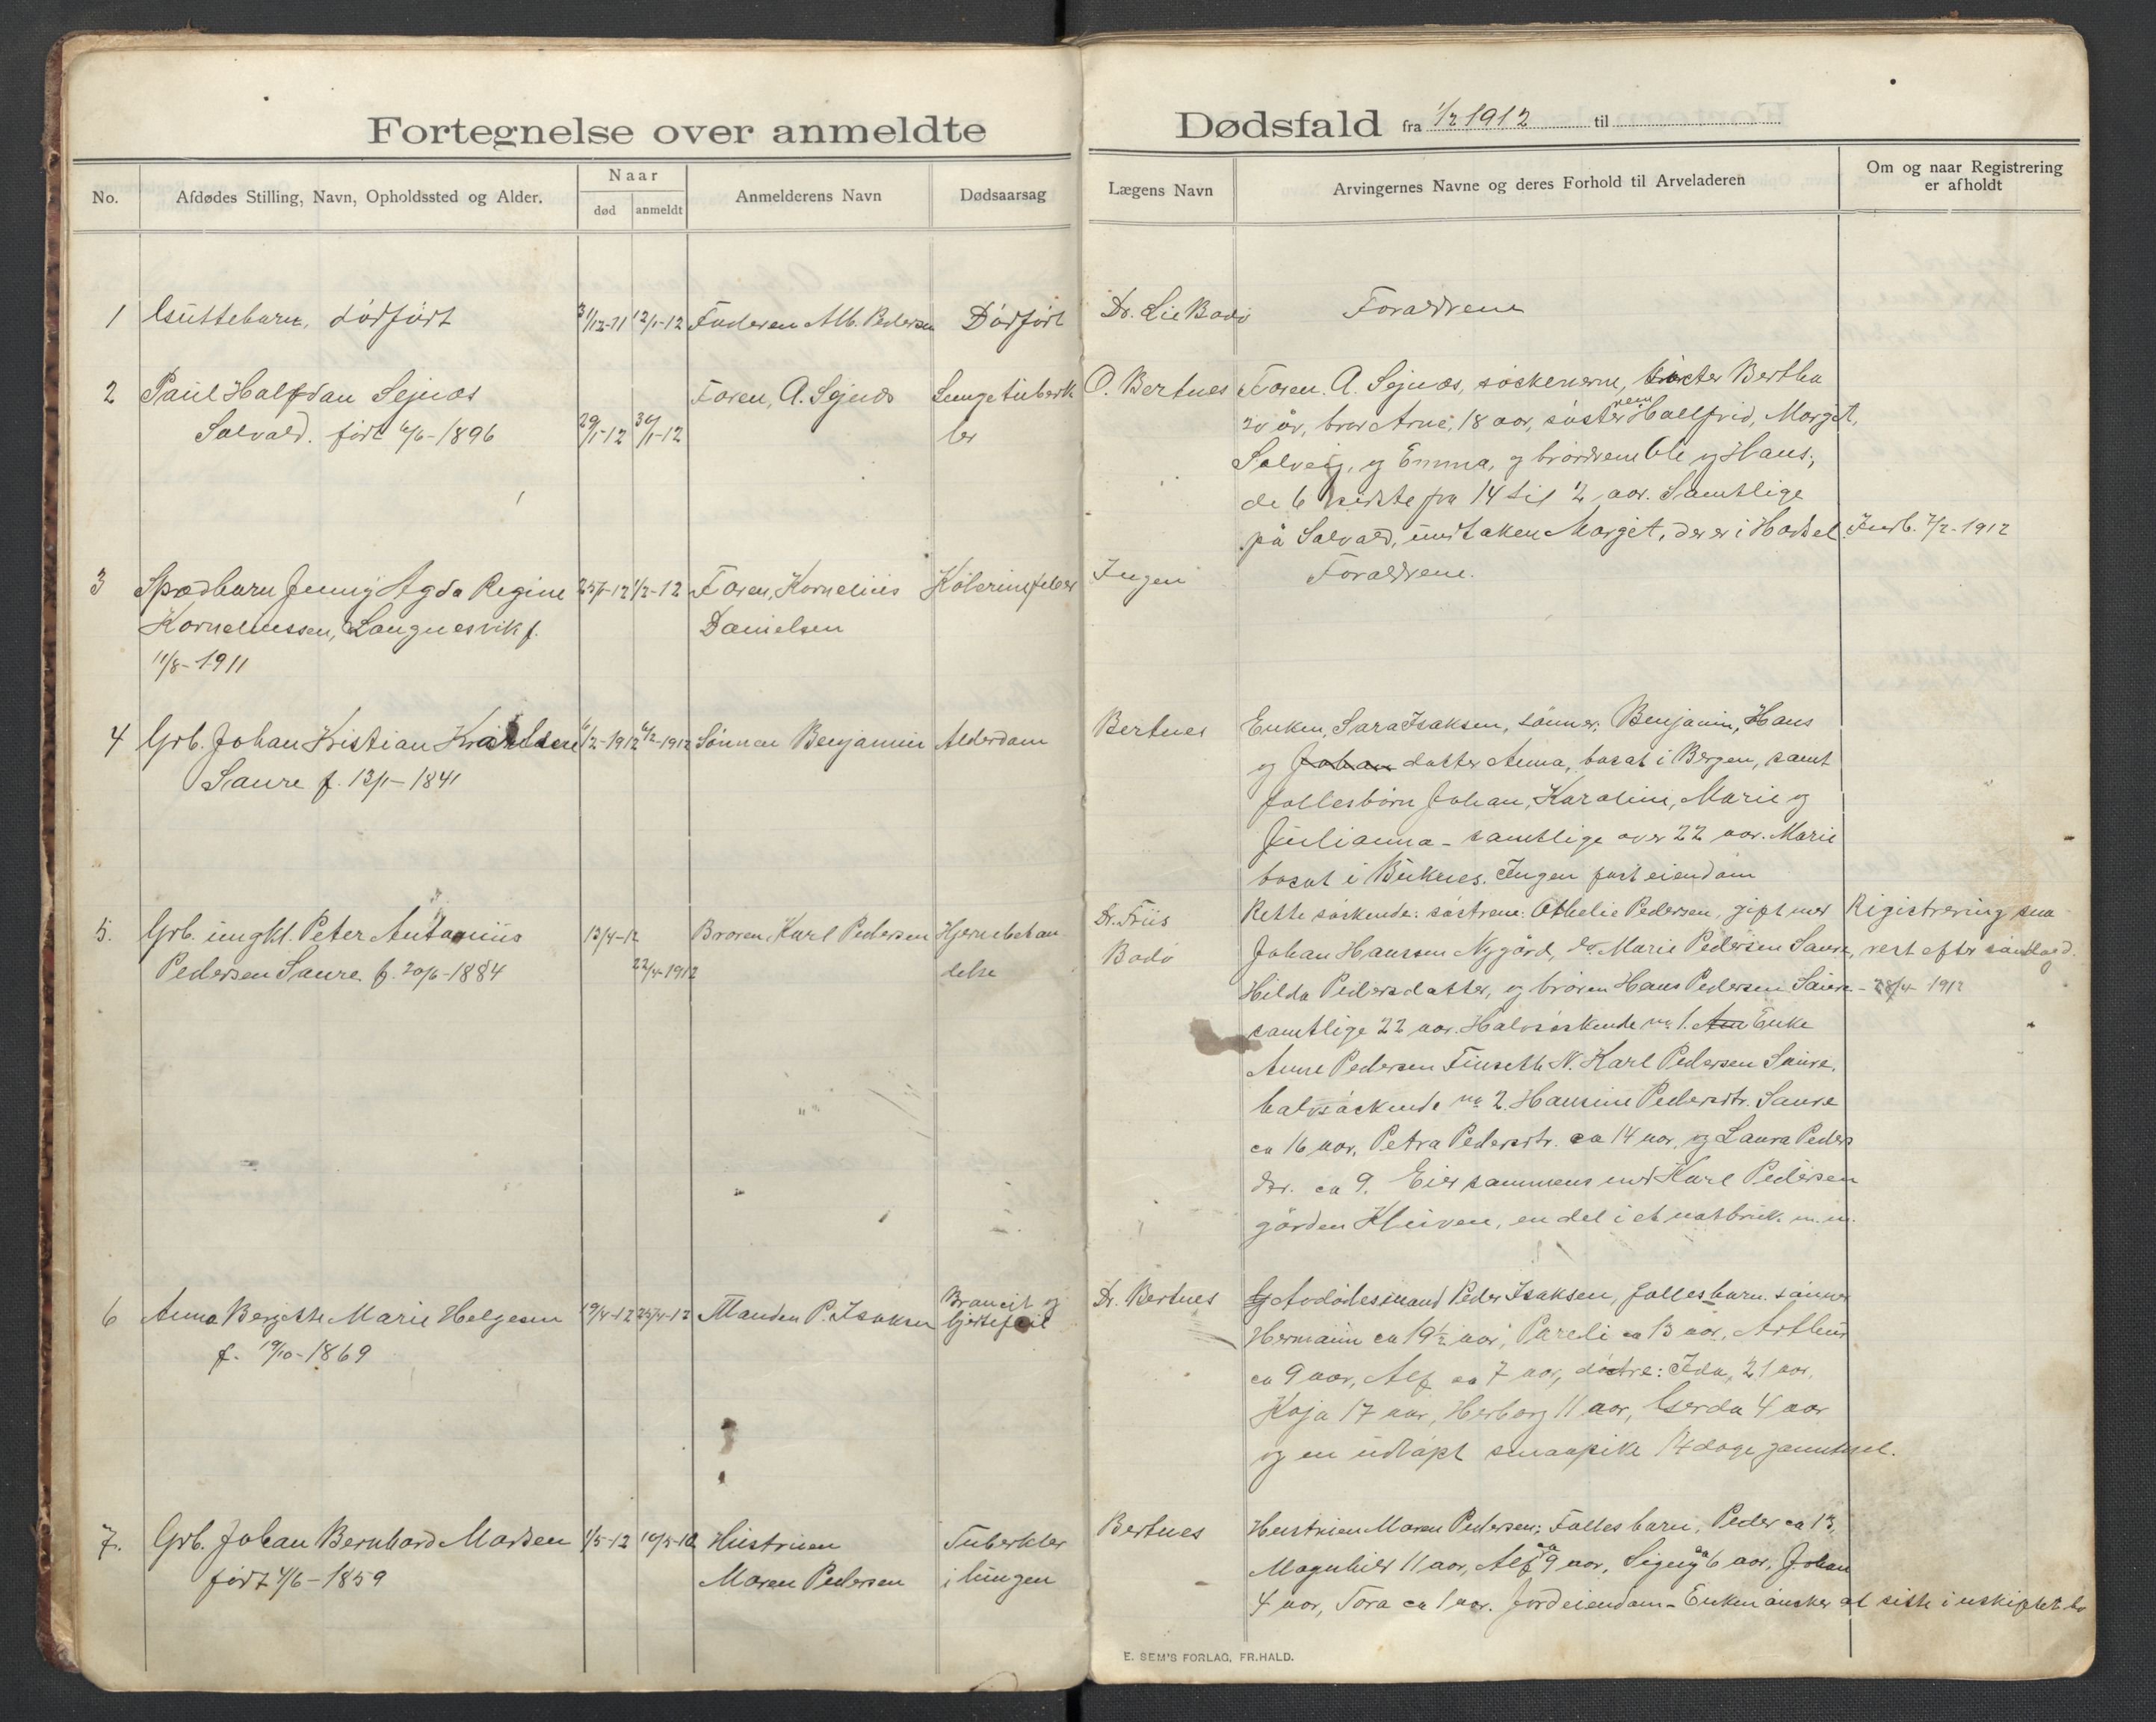 Fortegnelse over anmeldte
Dødsfald fra 1/2 1912 til
No.
Afdødes Stilling, Navn, Opholdssted og Alder.
Naar
død
anmeldt
Anmelderens Navn
Dødsaarsag
Lægens Navn
Arvingernes Navne og deres Forhold til Arveladeren
Om og naar Registrering
er afholdt
1 Guttebarn, dødført 31/12-11 12/1-12 Faderen Alb. Pedersen Dødført Dr. Lie Bodø Forældrene
2 Paul Halfdan Sejnæs
Solvold. født 6/6-1896
29/1-12 30/1-12
Faren, A. Sejnæs
Lungetuberk
ler
O. Bertnes
Faren. A. Sejnæs, søskenerne, søster Bertha
20 år, bror Arne, 18 aar, søstrene Hallfrid, Margit,
Solveig, og Emma, og brødrene Ole og Hans;
de 6 sidste fra 14 til 2 aar. Samtlige
på Solvold, undtaken Margit, der er i Hadsel
Indb. 7/2-1912
3 Spædbarn Jenny Agda Regine
Korneliussen, Langnesvik f.
11/8-1911
25/1-12 1/2-12
Faren, Kornelius
Danielsen
Kolerinefeber
Ingen
Forældrene.
4 Grb. Johan Kristian Karlsen
Saure f. 13/1-1841
6/2-1912 6/2-1912
Sønnen Benjamin
Alderdom
Bertnes
Enken, Sara Isaksen, sønner, Benjamin, Hans
og Johan datter Anna, bosat i Bergen, samt
fællesbørn Johan, Karoline, Marie og
Julianna - samtlige over 22 aar. Marie
bosat i Buknes. Ingen fast eiendom
5. Grb. ungkl. Peter Antonius
Pedersen Saure f. 20/6-1884
13/4-12
22/4-1912
Broren, Karl Pedersen
Hjernebetæn
delse
Dr. Friis
Bodø
Rette søskende: søstrene: Othelie Pedersen, gift med
Johan Hanssen Nygård, do Marie Pedersen Saure,
Hilda Pedersdatter, og broren Hans Pedersen Saure -
samtlige 22 aar. Halvsøskende no 1. Enke
Anne Pedersen Finseth N. Karl Pedersen Saure.
halvsøskende no 2. Hansine Pedersdtr. Saure
ca 16 aar, Petra Pedersdtr. ca 14 aar, og Laura Peders
dtr. ca 9. Eier sammens med Karl Pedersen
gården Kleiven, en del i et notbruk m. m.
Registrering
28/4 1912
6 Anna Bergette Marie Helgesen
f. 19/10-1869
19/4-12 25/4-12
Manden P. Isaksen
Broncit og
hjertefeil
Dr. Bertnes
Avdødes mand Peder Isaksen, fælles barn. sønner
Hermann ca 19½ aar, Pareli ca 13 aar, Arthur
ca 9 aar, Alf ca 7 aar, døtre: Ida, 21 aar,
Kaja 17 aar, Herborg 11 aar, Gerda 4 aar
og en udøpt smaapike 14 dage gammel.
7. Grb. Johan Bernhard Madsen
født 4/6-1859
1/5-12 10/5-12
Hustruen
Maren Pedersen
Tuberkler
i lungen
Bertnes
Hustruen Maren Pedersen; Fælles barn, Peder ca 13,
Magnhild 11 aar, Alf ca 9 aar, Signy ca 6 aar, Johan
4 aar, Tora ca 1 aar. Jordeiendom - Enken ønsker at sitte i uskiftet bo
E. SEM'S FORLAG, FR.HALD.